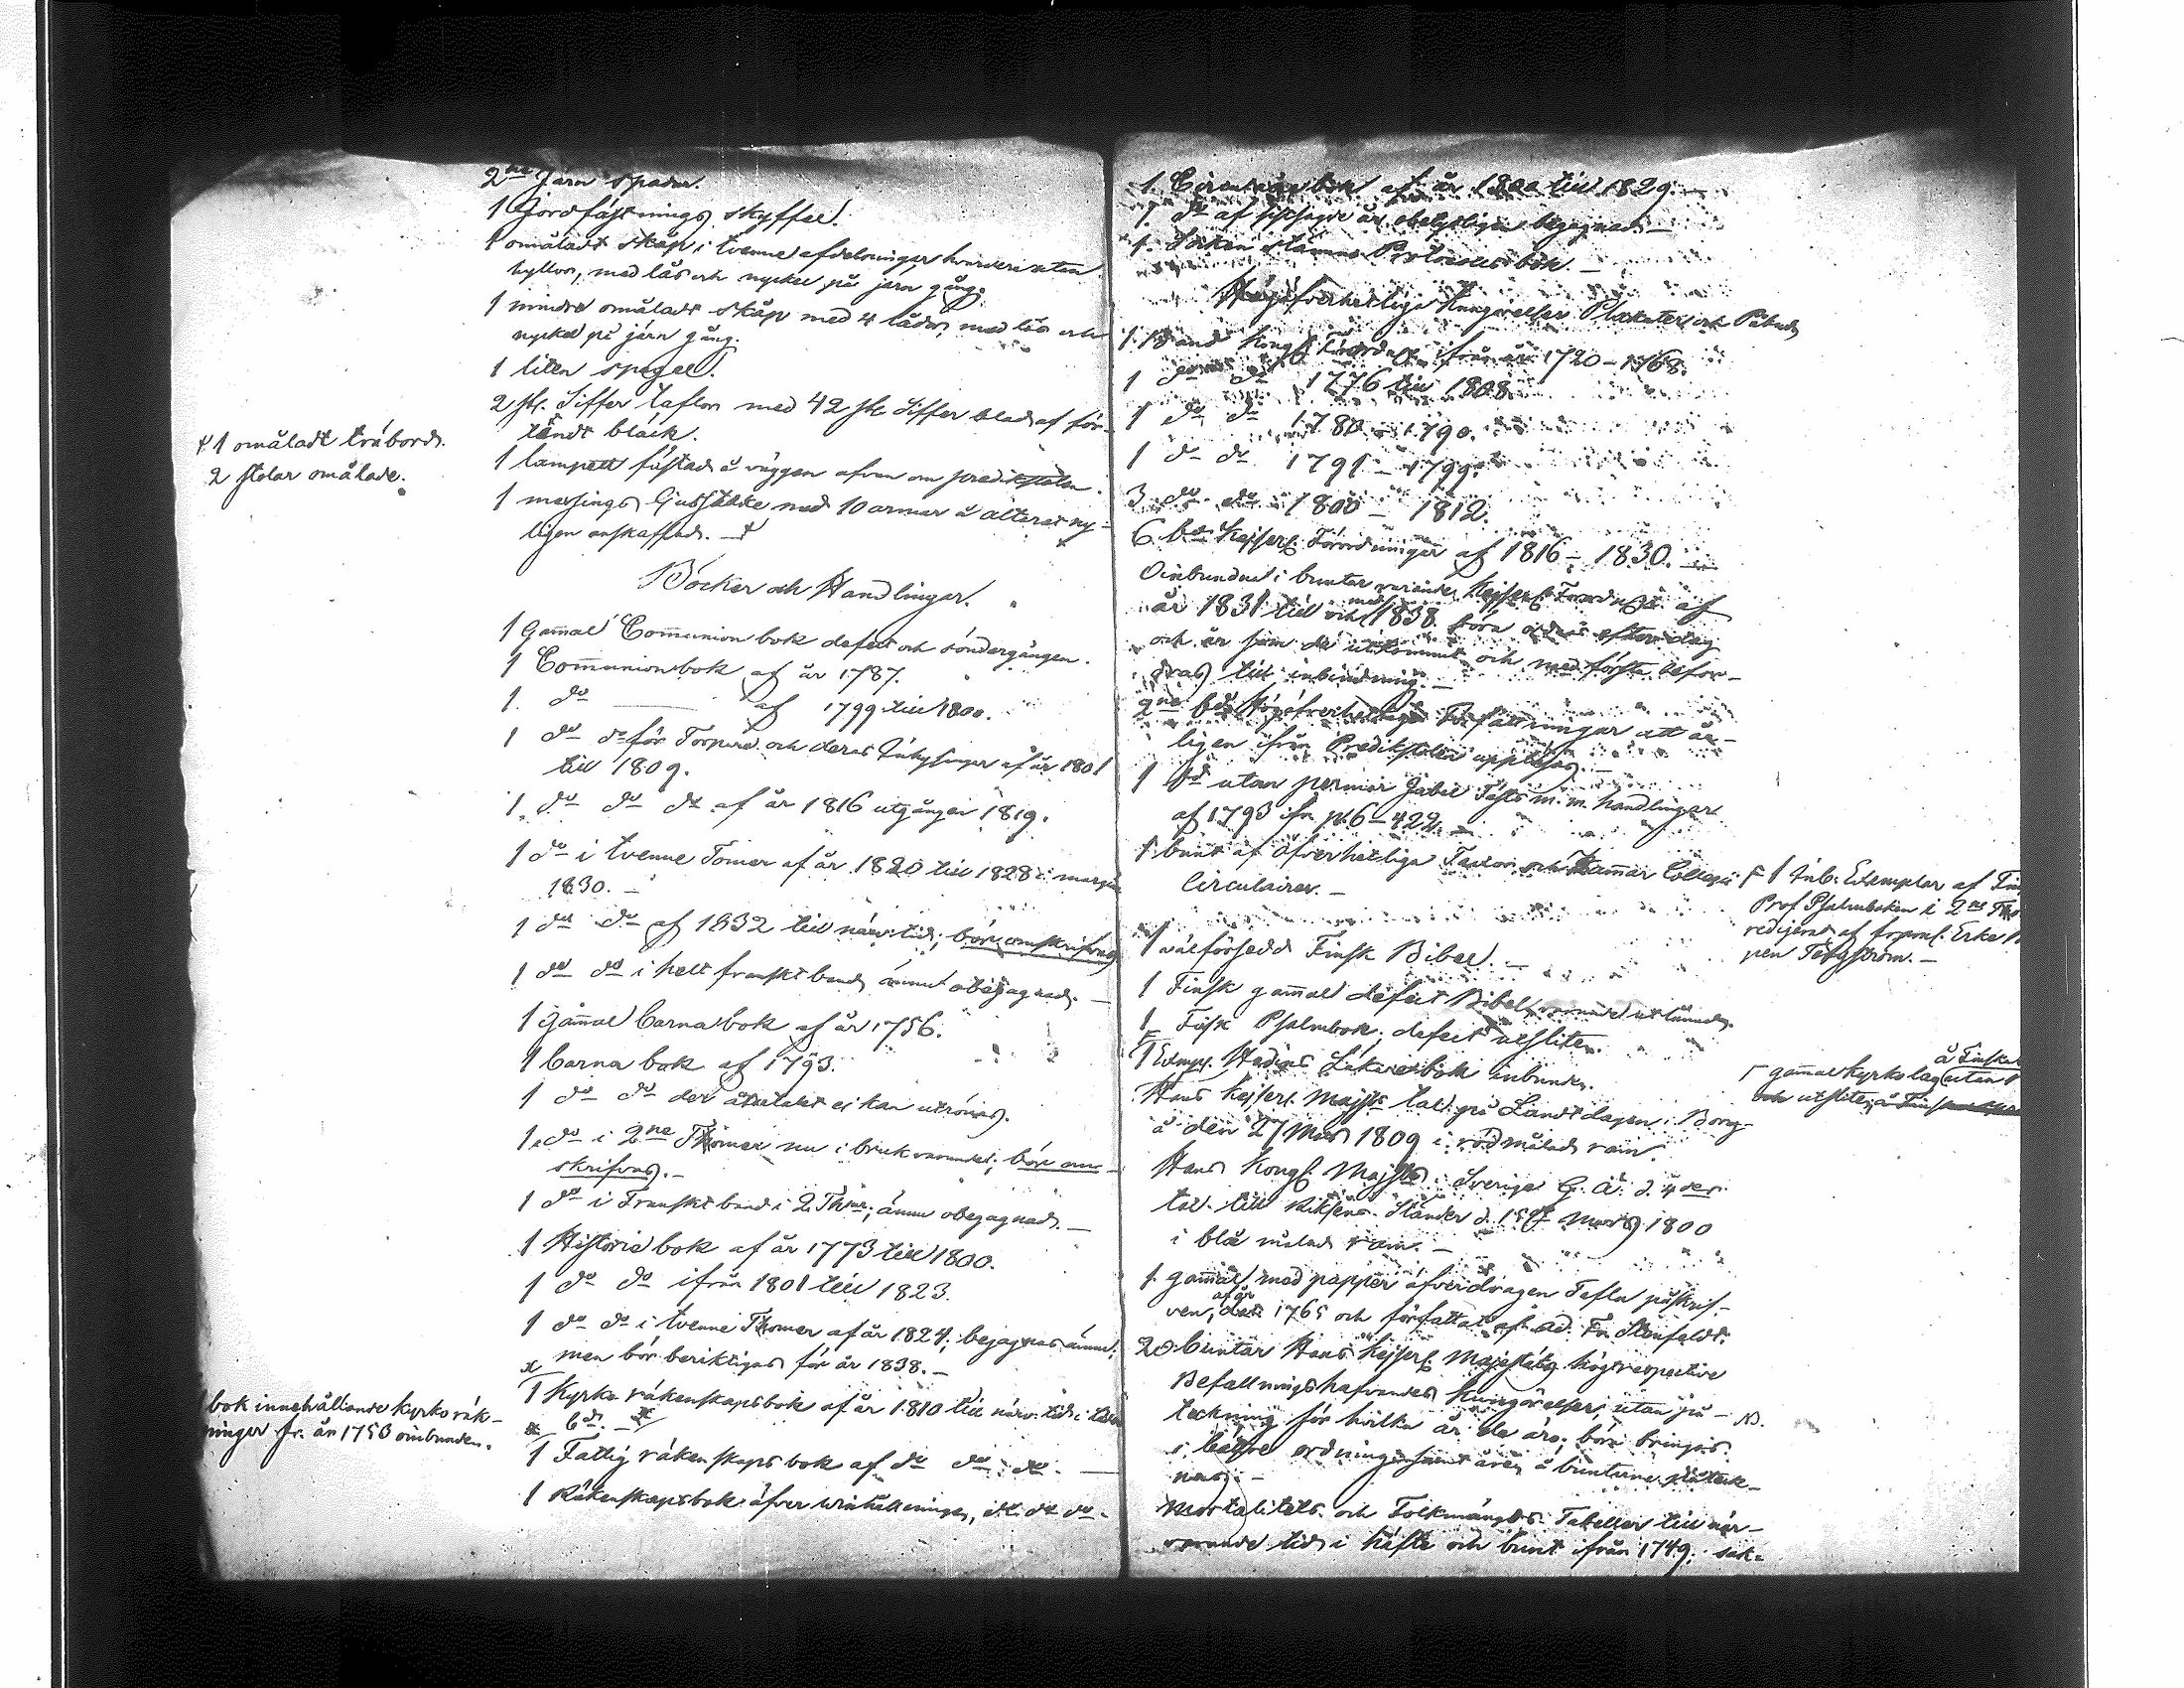 2ne Jarn Spadar.
1 Jordfästnings skyffel.
1 omåladt skåp i tvenne afdelningar hvardera utan
hyllor, med lås och nyckel på jern gång.
1 mindre omåladt skåp med 4 lådor, med lås och
nyckel på järn gång.
1 liten spegel.
2 st. Siffer taflor med 42 st. Siffer blad af för-
tändt bläck.
1 lampett fästad å väggen ofvan om predikstolen.
1 messings Ljusstake med 10 armar å alteret ny-
ligen anskaffad.
1 omåladt träbord.
2 stolar omålade.
Böcker och Handlingar.
1 Gammal Communion bok defect och söndergången.
1 Communionbok af år 1787.
1 do af 1799 till 1800.
1 do do för Torpare och deras Inhysingar af år 1801
till 1809.
1 do do do af år 1816 utgången 1819.
1 do i tvenne Tomer af år 1820 till 1828 i margin
1830.
1 do do af 1832 till närv. tid; bör omskrifvas
1 do do i helt franskt band, ännu obegagnad.
1 Gammal Barnabok af år 1756.
1 Barna bok af 1793.
1 do do der årtalet ej kan utrönas.
1 do i 2ne Thomer nu i bruk varande; bör om-
skrifvas.
1 do i Franskt band i 2 Thmr; ännu obegagnad.
1 Historie bok af år 1773 till 1800.
1 do do ifrån 1801 till 1823.
1 do do i tvenne Thomer af år 1824; begagnas ännu;
men bör beriktigas för år 1838.
1 Kyrko räkenskapsbok af år 1810 till närv. tid i
bd.
1 Fattig räkenskaps bok af do do do.
1 Räkenskapsbok öfver do do do.
bok innehållande kyrko räk-
ninger fr. år 1753 oinbunden.
1 Circulairbok af år 1800 till 1829.
1 do af sistsagde år obetydligen begagnad.
1 Socken stämmo Protocollsbok.
Högöfverhetliga Kungörelser Plakater och Påbud
1 Band Kongl. Förordn. ifrån år 1720 - 1768.
1 do do 1776 till 1808.
1 do do 1780 - 1790.
1 do do 1791 - 1799.
3 do do 1800 - 1812.
6 bd Kejserl. Förordningar af 1816 - 1830.
Oinbundne i buntar varande Kejserl. Förordn. af
år 1831 till och med 1838 böra ordnas efter dag
och år som de utkommit och med första befor-
dras till inbindning.
2ne bd Högöfverhetliga Författningar att år-
ligen ifrån Predikstolen uppläsas.
1 bd utan permar Jubel Fests m. m. handlingar
af 1793 ifr. p. 6 - 422.
1 bunt af öfverhetliga Taxor och Kammar Collegii
Circulairer.
1 välförsedd Finsk Bibel.
1 Finsk gammal defect Bibel
1 Finsk Psalmbok, defect utsliten.
1 Exmpl. Hedins Läkarebok inbunden.
Hans Kejserl. Majsts tal på Landtdagen i Borg-
å den 27 Mars 1809 i röd målad ram.
Hans Kongl. Majsts i Sverige G. A. d. 4des
tal till Riksens Ständer d. 15 Mars 1800
i blå målad ram.
1 gammal, med papper öfverdragen Tafla påskrif-
ven, af år 1765 och författat af Ad. Fr. Stenfeldt.
20 buntar Hans Kejserl. Majestäts högtrespective
Befallningshafvandes Kungörelser, utan på-
teckning för hvilka år de äro; böra bringas
i bättre ordning samt åren å bunterna påteck-
nas.
Mortalitets och Folkmängds Tabeller till när-
varande tid i häfte och bunt ifrån 1749; sak-
1 Inb. Exemplar af
Prof Psalmboken i 2ne
redigerad af Erke
pen Tengström.
å Finska
1 gammal kyrko lag utan
och utsliten